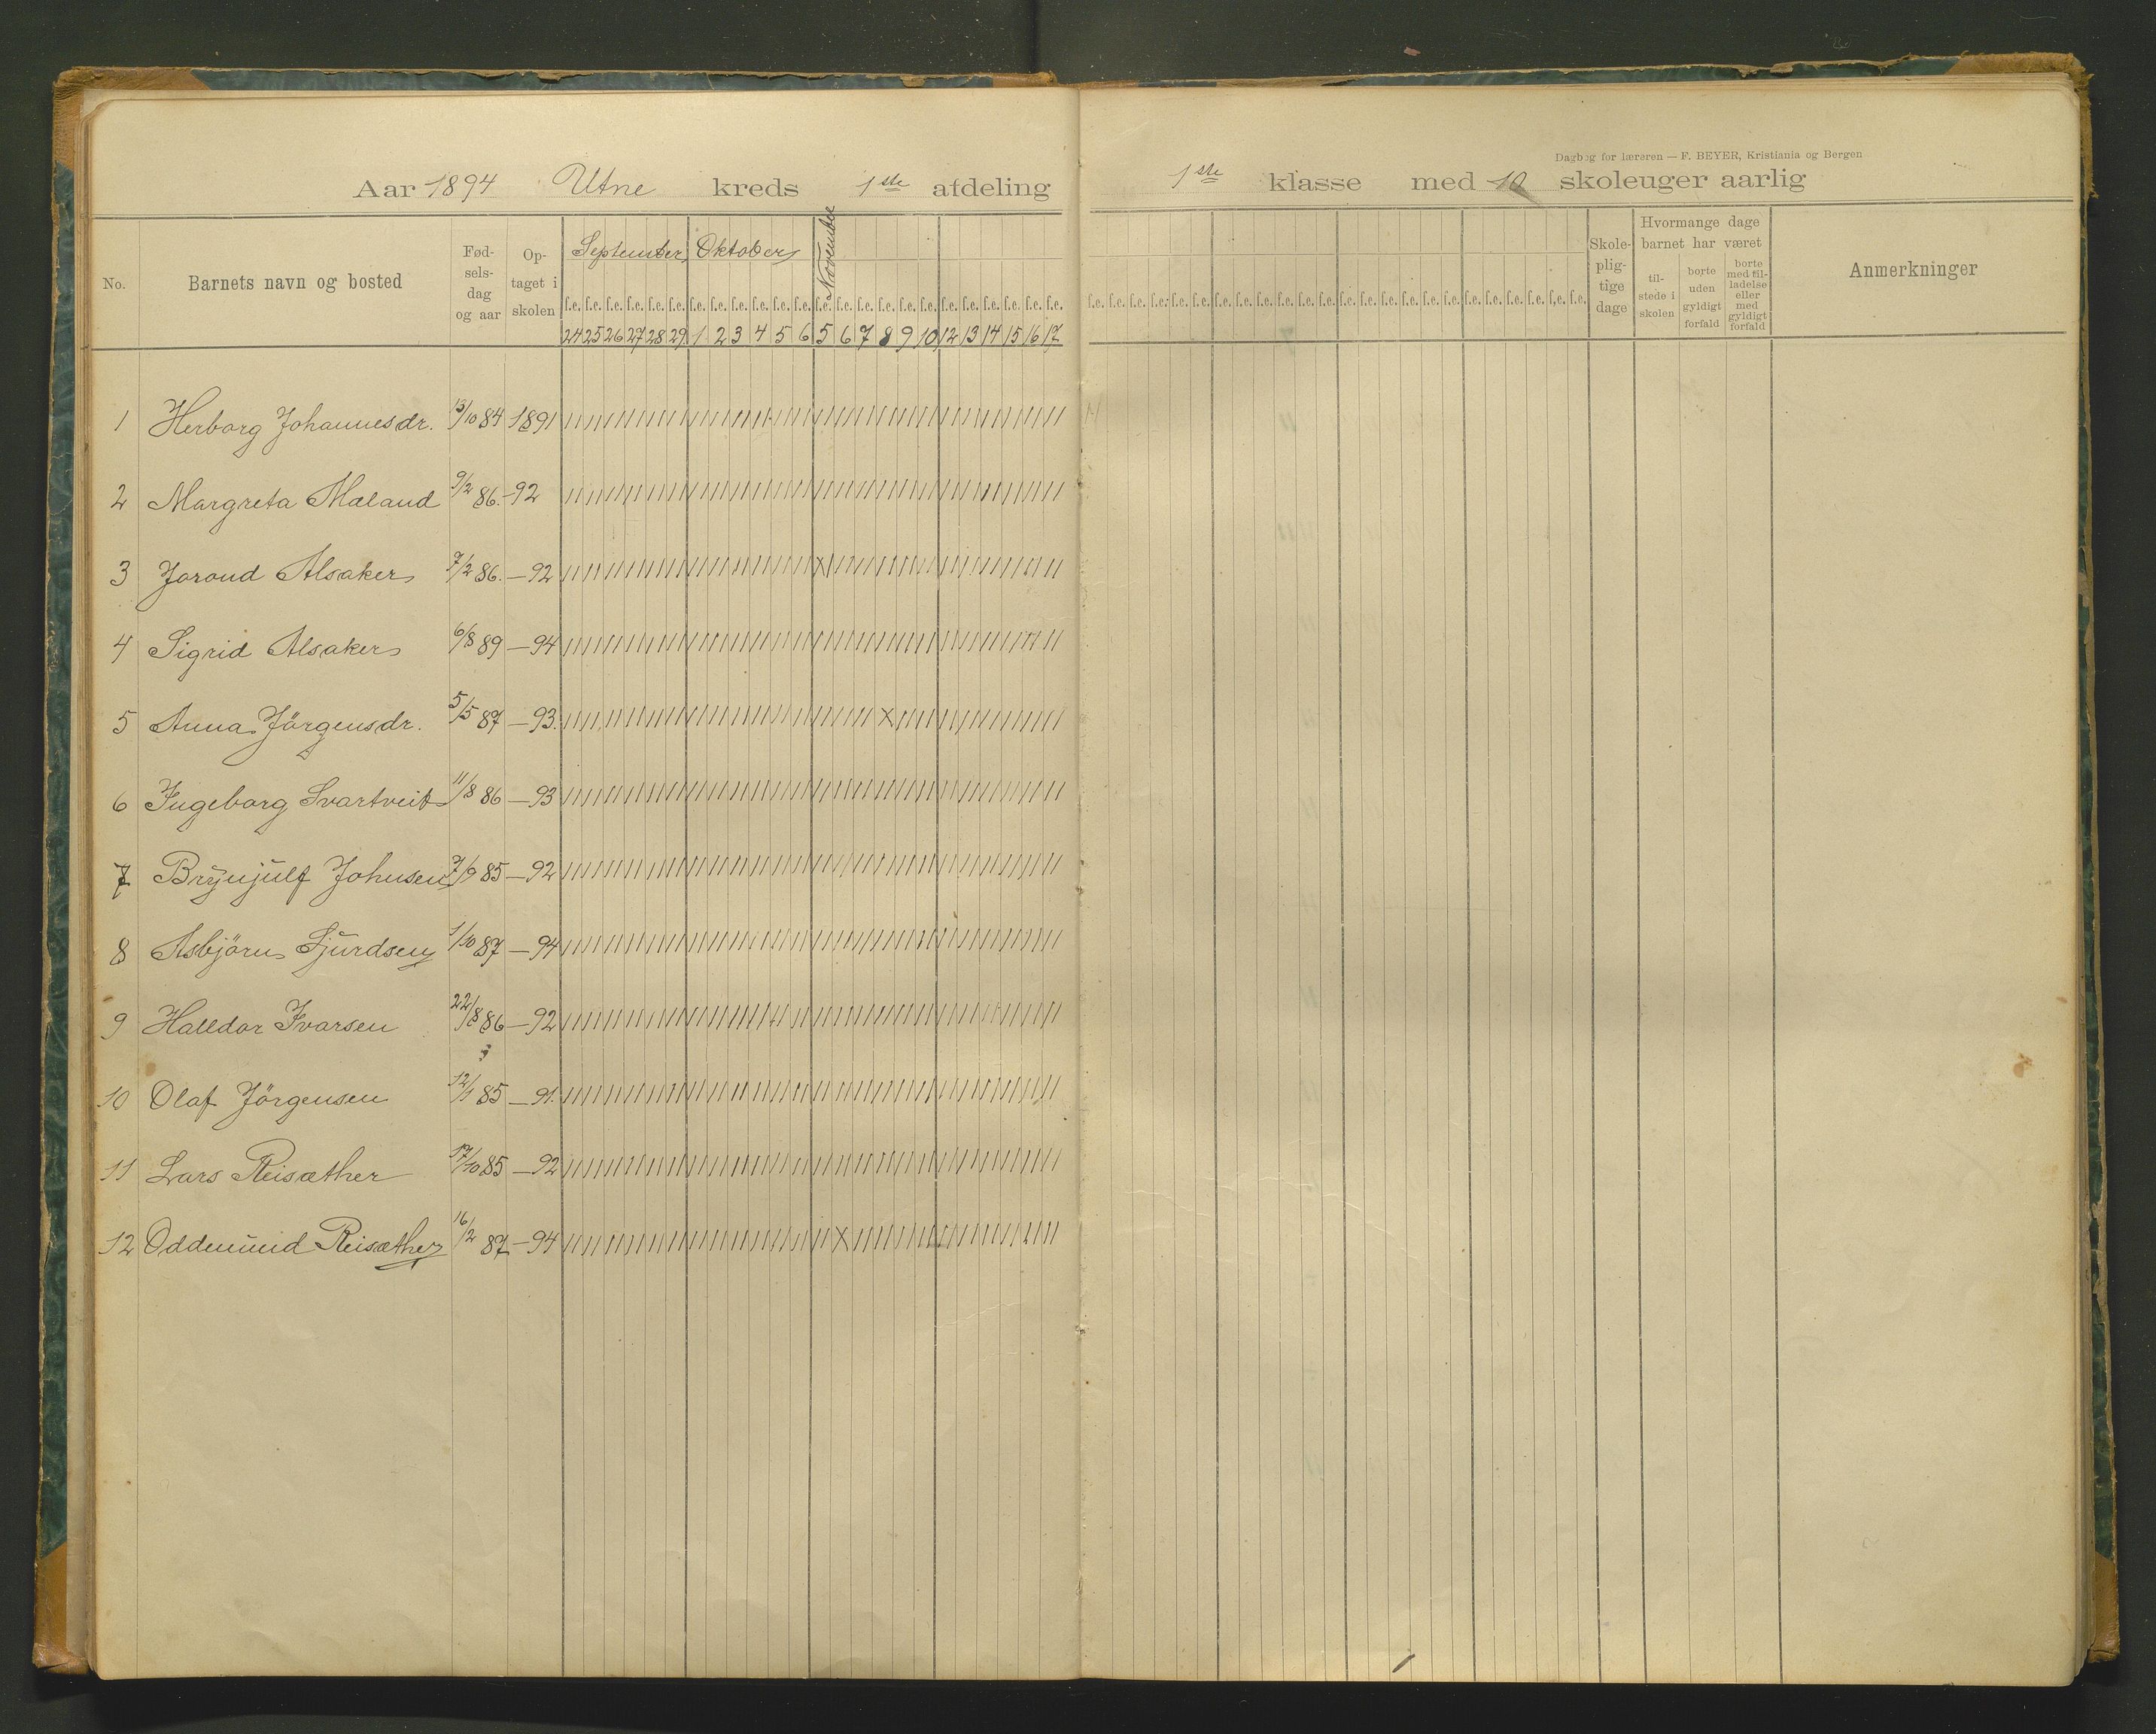 Dagbog for læreren — F. BEYER, Kristiania og Bergen
Aar 1894 Utne kreds 1ste afdeling 1ste klasse med 10 skoleuger aarlig
No. Barnets navn og bosted Fødselsdag og aar Optaget i skolen September Oktober November
f.e. f.e. f.e. f.e. f.e. f.e. f.e. f.e. f.e. f.e. f.e. f.e. f.e. f.e. f.e. f.e. f.e. f.e. f.e. f.e. f.e. f.e. f.e. f.e.
24 25 26 27 28 29 1 2 3 4 5 6 5 6 7 8 9 10 12 13 14 15 16 17
f.e. f.e. f.e. f.e. f.e. f.e. f.e. f.e. f.e. f.e. f.e. f.e. f.e. f.e. f.e. f.e. f.e. f.e. f.e. f.e. f.e. f.e. f.e. f.e.
Skolepligtige dage
Hvormange dage barnet har været
tilstede i skolen
borte uden gyldigt forfald
borte med tilladelse eller med gyldigt forfald
Anmerkninger
1 Herborg Johannesdr. 13/10 84 1891
2 Margreta Mæland 9/2 86. -92
3 Jorond Alsaker 7/2 86. -92
4 Sigrid Alsaker 6/8 89 -94
5 Anna Jörgensdr. 5/5 87 -93.
6 Ingeborg Svartveit 11/8 86 -93
7 Brynjulf Johnsen 7/9 85 -92
8 Asbjörn Sjurdsen 1/10 87 -94
9 Halldor Ivarsen 22/8 86 -92
10 Olaf Jörgensen 12/1 85 -91.
11 Lars Reisæther 17/10 85 -92
12 Oddmund Reisæther 16/2 87 -94